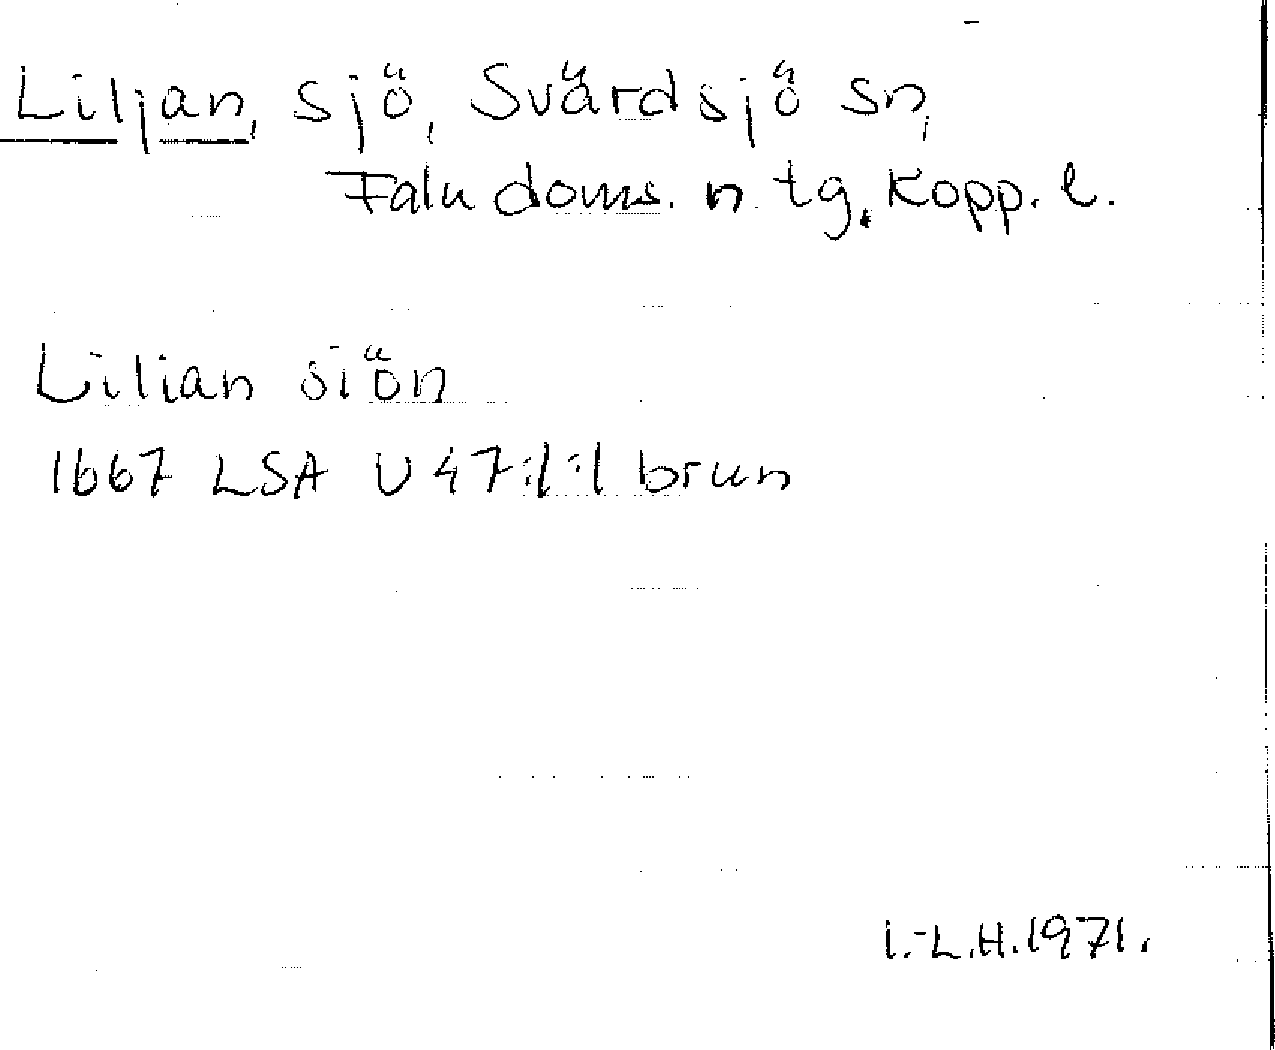 Liljan, sjö, Svärdsjö sn,
Falu doms. n. tg. Kopp. l.
Lilian siön
1667 LSA U 47:1:1 brun
I.-L.H. 1971.